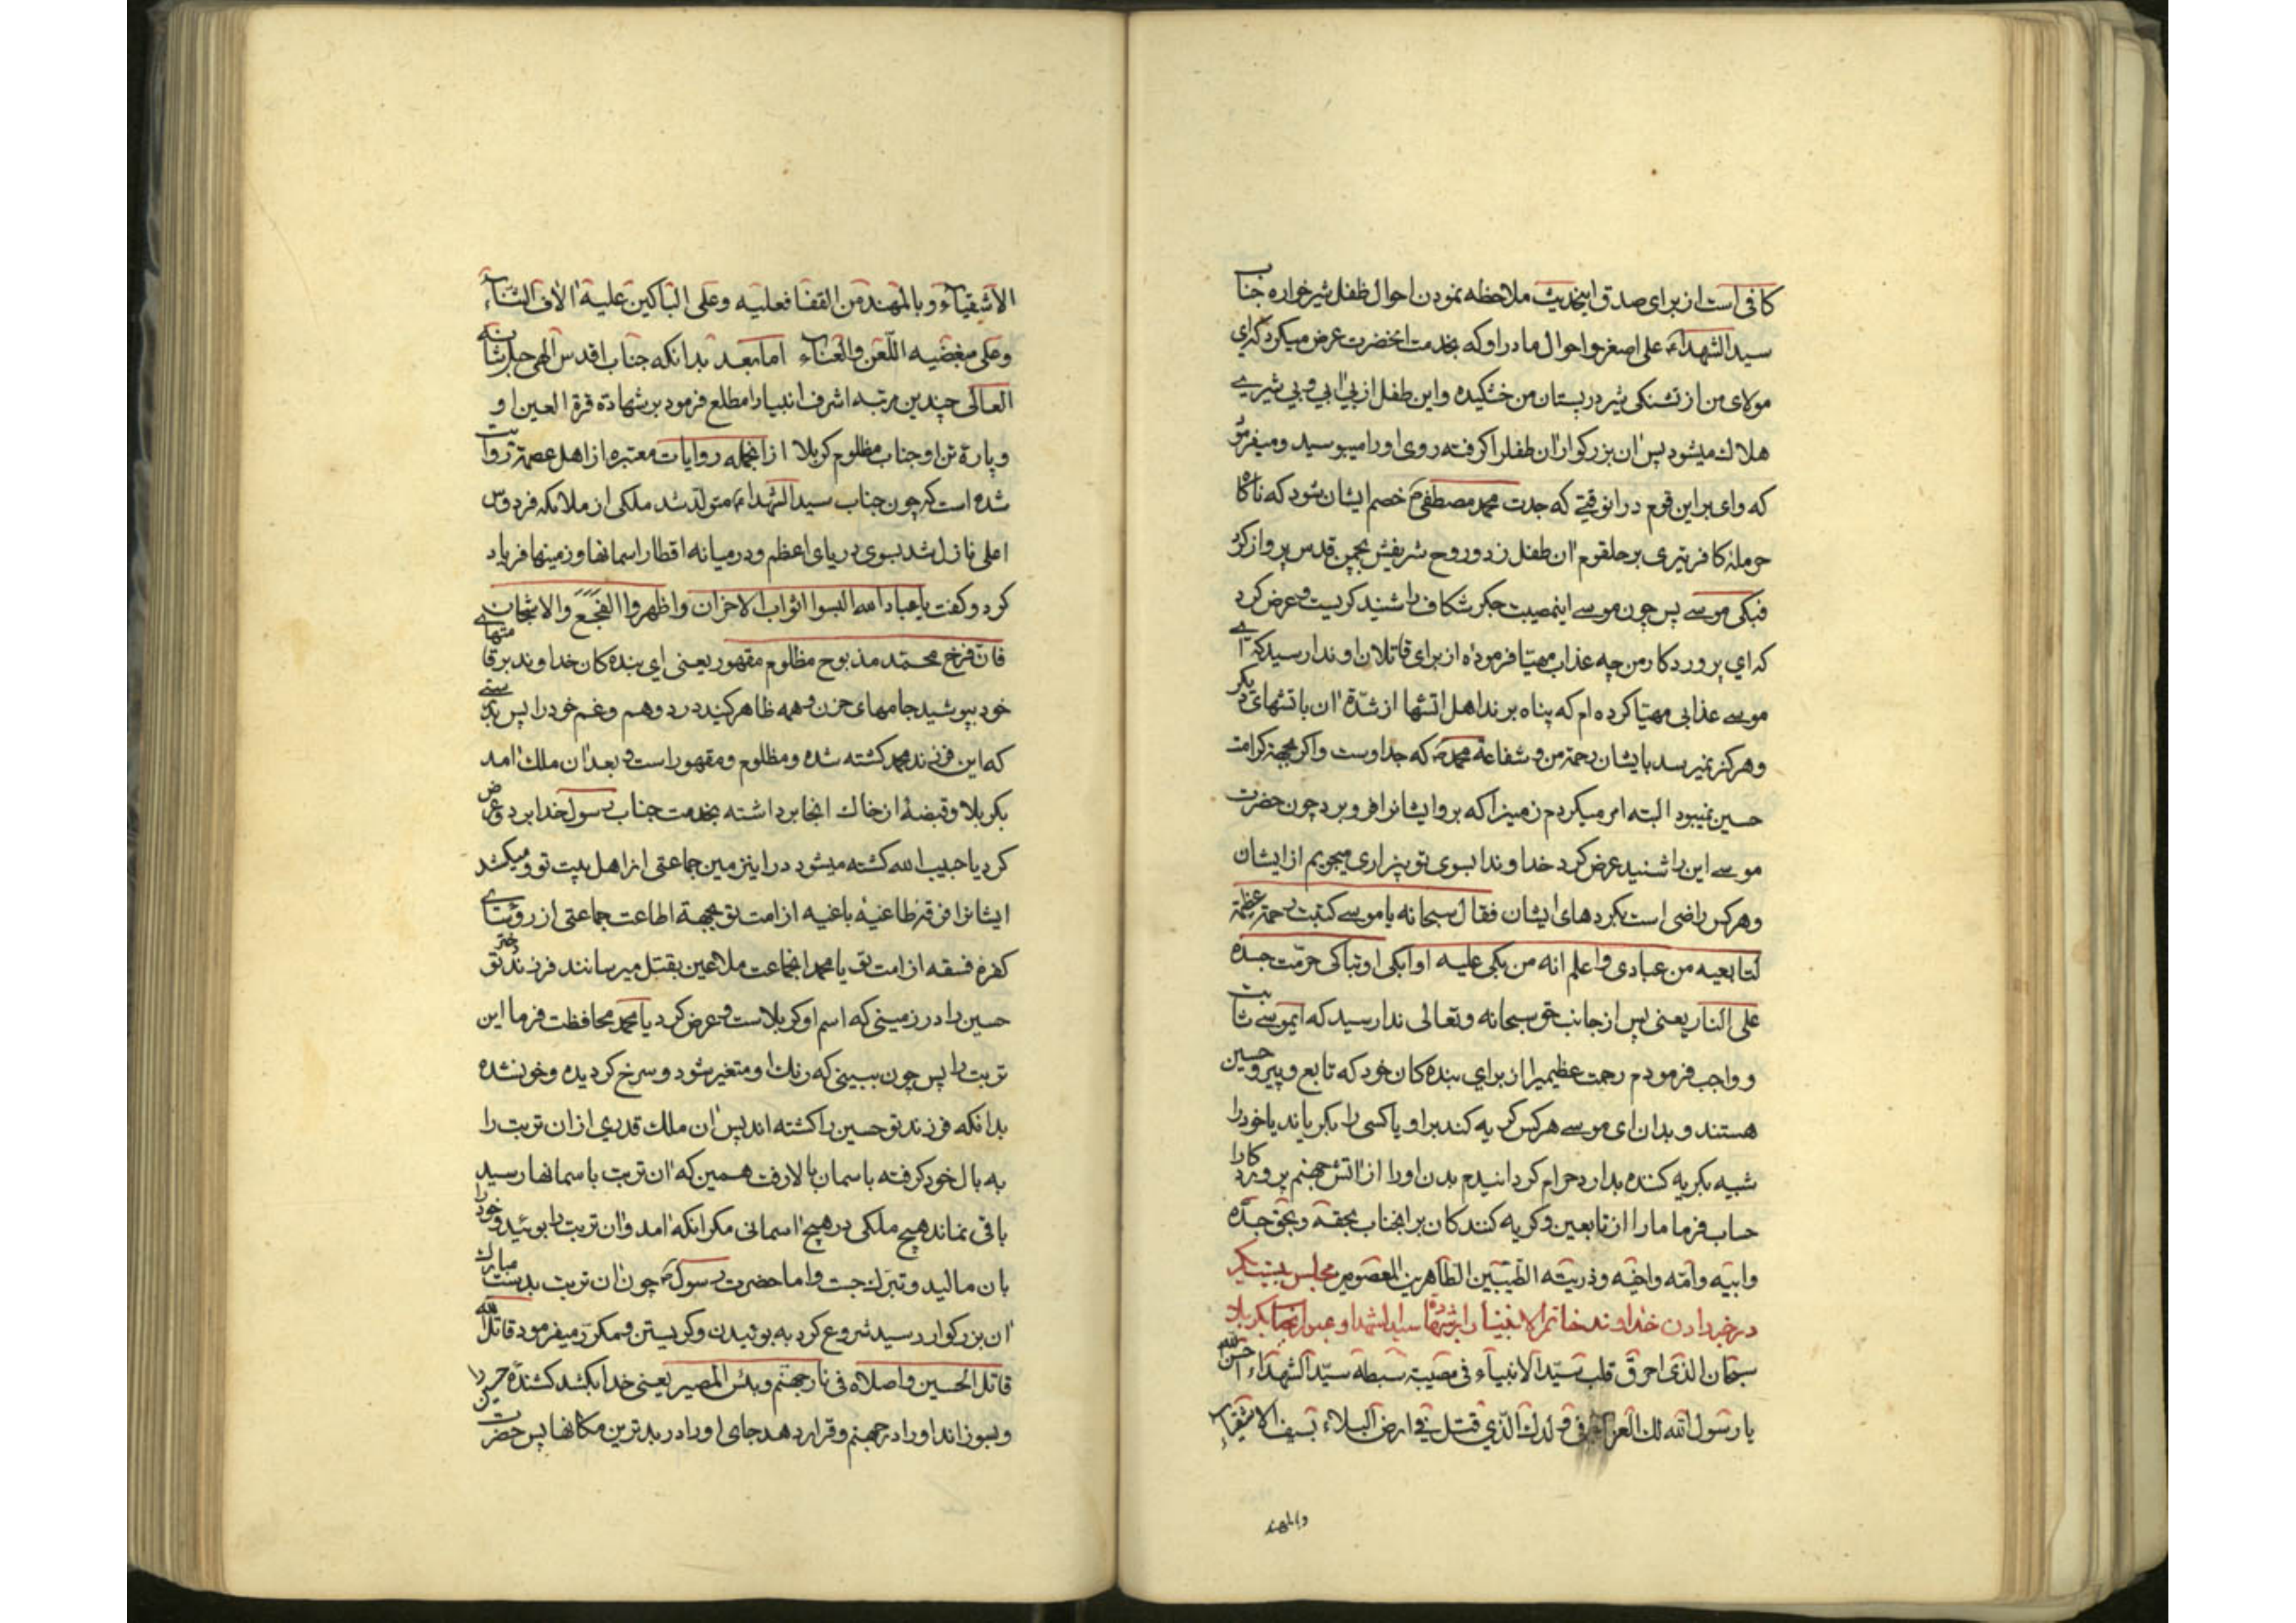 کافی است از برای صدق اینحدیث ملاحظه نمودن احوال طفل شیرخواره جناب
سید الشهداء علی اصغر و احوال مادر او که بخدمت انحضرت عرض میکرد که ای
مولای من از تشنکی شیر در پستان من خشکیده و این طفل از بی ابی و بی شیری
هلاک میشود پس ان بزرکوار ان طفلرا کرفته روی او را میبوسید و میفرمود
که وای بر این قوم در انوقتی که جدت محمد مصطفی خصم ایشان شود که ناکاه
حرمله کافر تیری بر حلقوم ان طفل زد و روح شریفش بچمن قدس پرواز کرد
فبکی موسی پس چون موسی اینمصیبت جکر شکاف را شنید کریست و عرض کرد
که ای پروردکار من چه عذاب مهیا فرموده از برای قاتلان او ندا رسید که ای
موسی عذابی مهیا کرده ام که پناه برند اهل اتشها از شدة ان باتشهای دیکر
و هرکز نمیرسد بایشان رحمة من و شفاعة محمد که جد اوست و اکر بجهة کرامت
حسین نمیبود البته امر میکردم زمینرا که بر و ایشانرا فرو برد چون حضرت
موسی این را شنید عرض کرد خداوندا بسوی تو بیزاری میجویم از ایشان
و هرکس راضی است بکردهای ایشان فقال سبحانه یا موسی کتبت رحمة عظیمة
لتابعیه من عبادی و اعلم انه من بکی علیه او ابکی او تباکی حرمت جسده
علی النار یعنی پس از جانب حق سبحانه و تعالی ندا رسید که ایموسی ثابت
و واجب فرمودم رحمت عظیمیرا از برای بنده کان خود که تابع و پیرو حسین
هستند و بدان ای موسی هرکس کریه کند بر او یا کسی را بکریاند یا خود را
شبیه بکریه کننده بدارد حرام کردانیدم بدن او را از اتش جهنم پروردکارا
حساب فرما ما را از تابعین و کریه کنندکان بر انجناب بحقه و بحق جده
و ابیه و امه و اخیه و ذریته الطیبین الطاهرین المعصومین مجلس بیست یکم
در خبر دادن خداوند خاتم الانبیا را بر شهادة سید الشهدا و عبور انجناب بکربلا
سبحان الذی احرق قلب سید الانبیاء فی مصیبة سبطه سید الشهداء احسن الله
یا رسول الله لک العزاء فی ولدک الذی قتل فی ارض البلاء بسیف الاشقیاء
و بالمهند
الاشقیاء و بالمهند من القفا فعلیه و علی الباکین علیه الاف الثناء
و علی مبغضیه اللعن و العناء اما بعد بدانکه جناب اقدس الهی جل شانه
العالی چندین مرتبه اشرف انبیا را مطلع فرمود بر شهادة قرة العین او
و پارۀ تن او جناب مظلوم کربلا از انجمله روایات معتبره از اهل عصمة روایت
شده است که چون جناب سید الشهداء متولد شد ملکی از ملائکه فردوس
اعلی نازل شد بسوی دریای اعظم و در میانه اقطار اسمانها و زمینها فریاد
کرد و کفت یا عباد الله البسوا اثواب الاحزان و اظهروا التفجع و الاشجان
فان فرخ محمد مذبوح مظلوم مقهور یعنی ای بنده کان خداوند بر قامتهای
خود بپوشید جامهای حزن و همه ظاهر کنید درد و هم و غم خود را پس بدرستی
که این فرزند محمد کشته شده و مظلوم و مقهور است و بعد ان ملک امد
بکربلا و قبضۀ از خاک انجا برداشته بخدمت جناب رسول خدا برد و عرض
کرد یا حبیب الله کشته میشود در اینزمین جماعتی از اهل بیت تو و میکشد
ایشانرا فرقۀ طاغیۀ باغیه از امت تو بجهة اطاعت جماعتی از روئسای
کفره فسقه از امت تو یا محمد انجماعت ملاعین بقتل میرسانند فرزند دختر تو
حسین را در زمینی که اسم او کربلاست و عرض کرد یا محمد محافظت فرما این
تربت را پس چون ببینی که رنک او متغیر شود و سرخ کردیده و خون شده
بدانکه فرزند تو حسین را کشته اند پس ان ملک قدری از ان تربت را
به بال خود کرفته باسمان بالا رفت همین که ان تربت باسمانها رسید
باقی نماند هیچ ملکی در هیچ اسمانی مکر انکه امد و ان تربت را بوئید و خود را
بان مالید و تبرک جست و اما حضرت رسول چون ان تربت بدست مبارک
ان بزرکوار رسید شروع کرد به بوئیدن و کریستن و مکرر میفرمود قاتل الله
قاتل الحسین و اصلاه فی نار جهنم و بئس المصیر یعنی خدا بکشد کشندۀ حسین را
و بسوزاند او را در جهنم و قرار دهد جای او را در بدترین مکانها پس حضرت